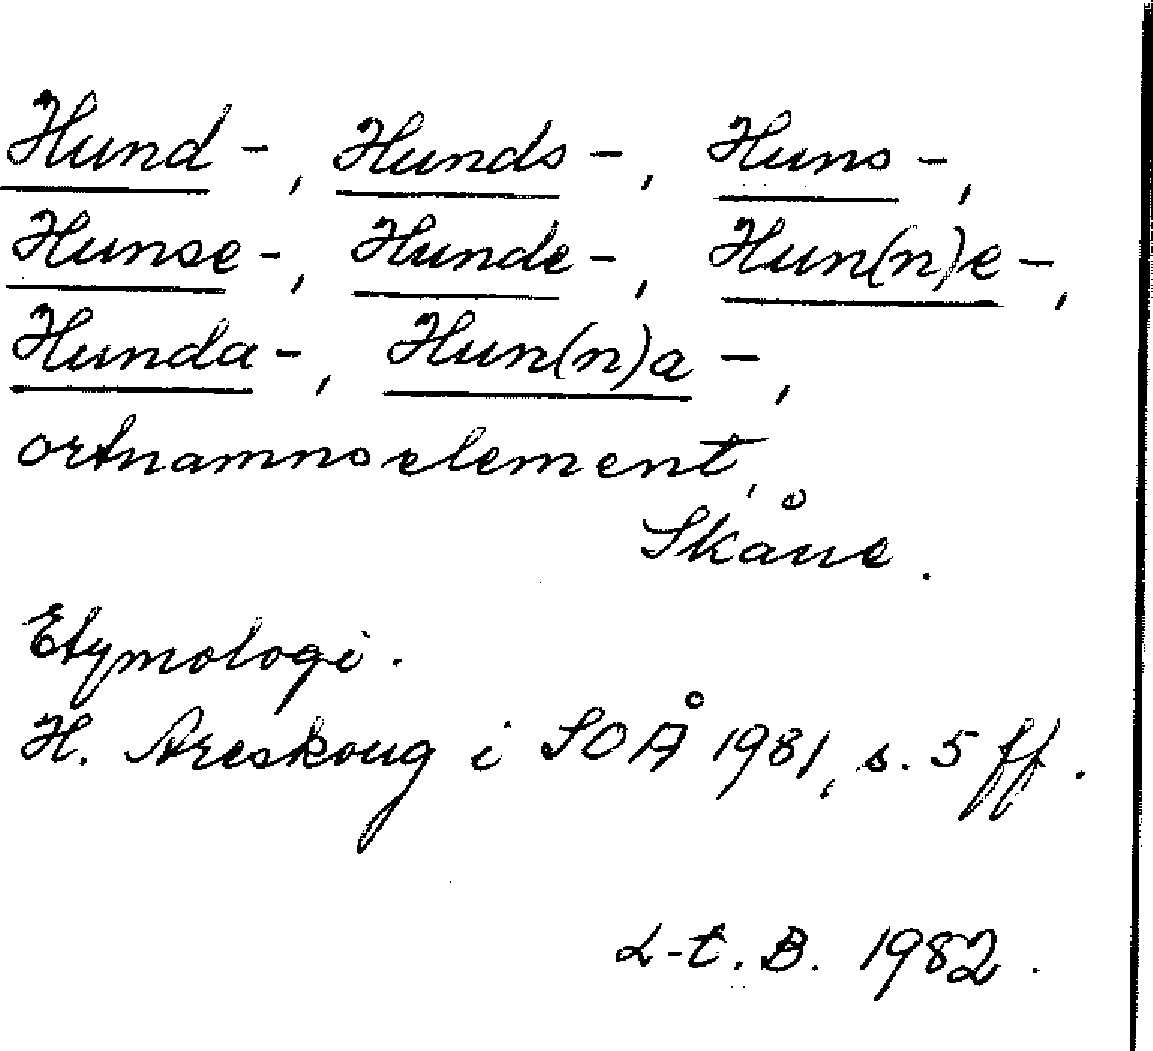 Hund-, Hunds-, Huns-,
Hunse-, Hunde-, Hun(n)e-,
Hunda-, Hun(n)a-,
ortnamnselement,
Skåne.
Etymologi.
H. Areskoug i SOÅ 1981, s. 5 ff.
L-t. B. 1982.